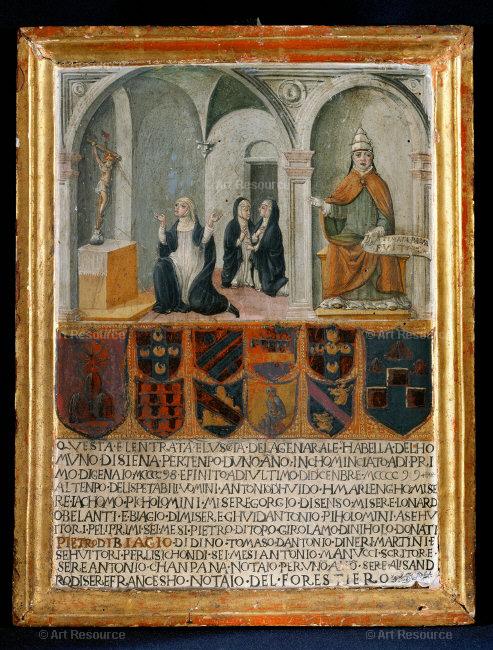 © Art Resource
© Art Resource
QVESTA·E·LENTRATA·E·LVSCITA·DELAGENARALE·HABELLA·DELHO
MVNO·DI·SIENA·PER·TENPO·DVNO·ANO·INCHOMINCIATO·ADI·PRI
MO·DI·GENAIO·MCCCC98·E·FINITO·ADI·VLTIMO·DIDCENBRE·MCCCC99
AL·TENPO·DELI·SPETABILI·VOMINI·ANTONIO·DHVIDO·
PICHOLOMINI·MISER·EGORIO·DI·SENSO·MISER·E·LONARD
BELANTI·E·BIAGIO·DI·MISER·E·GHVIDANTONIO·PIHOLOMINI·ASEHV
TORI·PE·LI·PRIMI·SEI·MESI·PIETRO·DI·TOPO·GIROLAMO·DINIHOLO·DONATI
PIETRO·DI·BIAGIO·DI·DINO·TOMASO·DANTONIO·DINERI·MARTINI·E
SEHVTTORI·PER·LI·SICHONDI·SEI·MESI·ANTONIO·MANVCCI·SCRITORE
SERE·ANTONIO·CHANPANA·NOTAIO·PER·VNO·SERE·ALISAND
RO·DI·SERE·FRANCESHO·NOTAIO·DEL·FORESTIERO
© Art Resource
© Art Resource